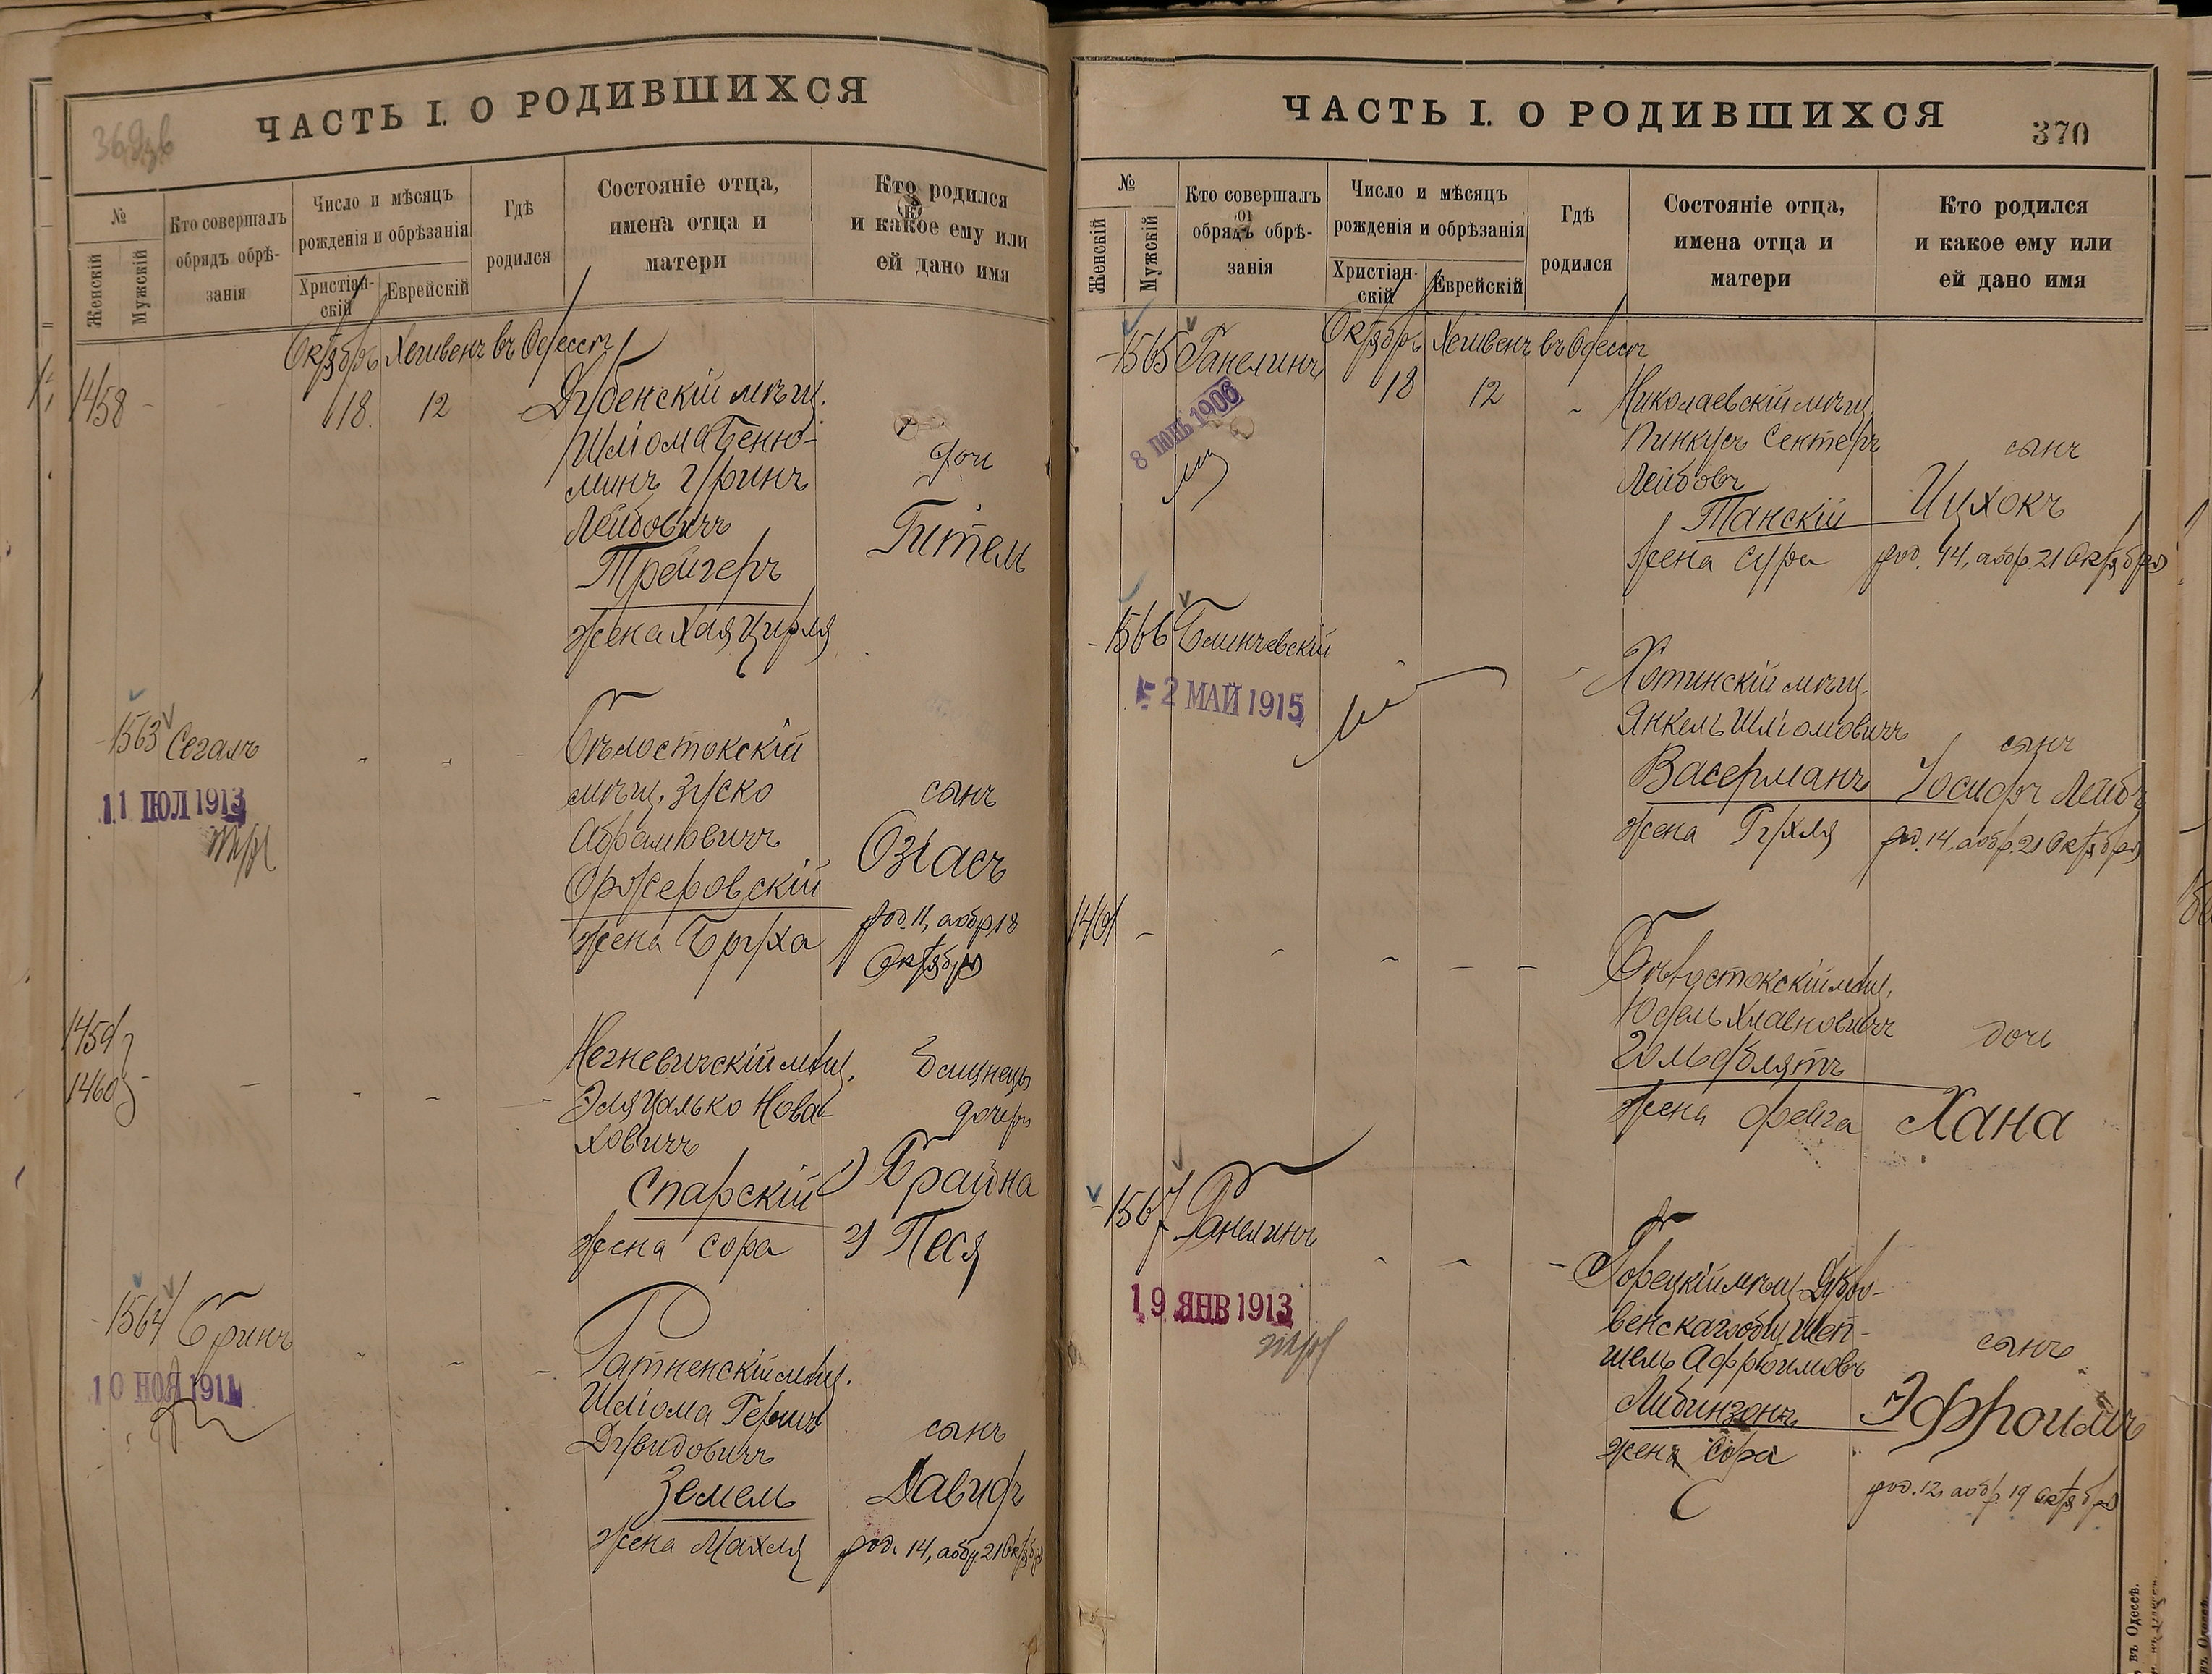 ЧАСТЬ I. О РОДИВШИХСЯ
№
Женскій
Мужскій
Кто совершалъ
обрядъ обрѣ-
занія
Число и мѣсяцъ
рожденія и обрѣзанія
Христіан-
скій
Еврейскій
Гдѣ
родился
Состояніе отца,
имена отца и
матери
Кто родился
и какое ему или
ей дано имя
Октябрь Хешвенъ въ Одессѣ
1458 - - 18. 12
Дубенскій мѣщ.
Шліома Беню-
минъ Гринъ
Лейбовичъ
Трейгеръ
жена Хая Цирля
дочь
Гитель
1563 Сегалъ
11 ІЮЛ 1913
Бѣлостокскій
мѣщ. Зуско
Абрамовичъ
Оржеровскій
жена Бруха
сынъ
Озіасъ
род. 11, аобр 18
Октября
1459
1460
мѣщ.
Эля Цалько Нова-
ховичъ
Спарскій
жена Сора
близнецы
дочери
1) Брайна
2) Песя
1564 Бринъ
10 НОЯ 1911
Ратненскій мѣщ.
Шліома Гершъ
Давидовичъ
Земель
жена Махля
сынъ
Давидъ
род. 14, аобр. 21 Октября
ЧАСТЬ I. О РОДИВШИХСЯ
370
№
Женскій
Мужскій
Кто совершалъ
обрядъ обрѣ-
занія
Число и мѣсяцъ
рожденія и обрѣзанія
Христіан-
скій
Еврейскій
Гдѣ
родился
Состояніе отца,
имена отца и
матери
Кто родился
и какое ему или
ей дано имя
Октябрь Хешвенъ въ Одессѣ
1565 Ганелинъ 18 12
8 ІЮНЬ 1906
Николаевскій мѣщ.
Пинкусъ Сентеръ
Лейбовъ
Танскій
жена Сура
сынъ
Ицхокъ
род. 14, аобр. 21 Октября
1566 Блинчевскій
2 МАЙ 1915
Хотинскій мѣщ.
Янкель Шліомовичъ
Васерманъ
жена Рухля
сынъ
Іосифъ Лейбъ
род. 14, аобр. 21 Октября
1461
Бѣлостокскій мѣщ.
Юдель Хлавновичъ
Гольдблятъ
жена Фейга
дочь
Хана
1567 Ганелинъ
19 ЯНВ 1913
Горецкій мѣщ. Дубро-
венскаго общ. Шеп-
шель Афроимовъ
Либинзонъ
жена Сора
сынъ
Эфроимъ
род. 12, аобр. 19 Октября
въ Одессѣ.